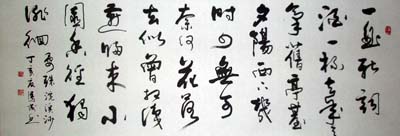 一曲新詞
酒一杯去年天
氣舊亭臺
夕陽西下幾
時回無可
奈何花落
去似曾相識
燕歸來小
園香徑獨
徘徊
晏殊浣溪沙
丁亥